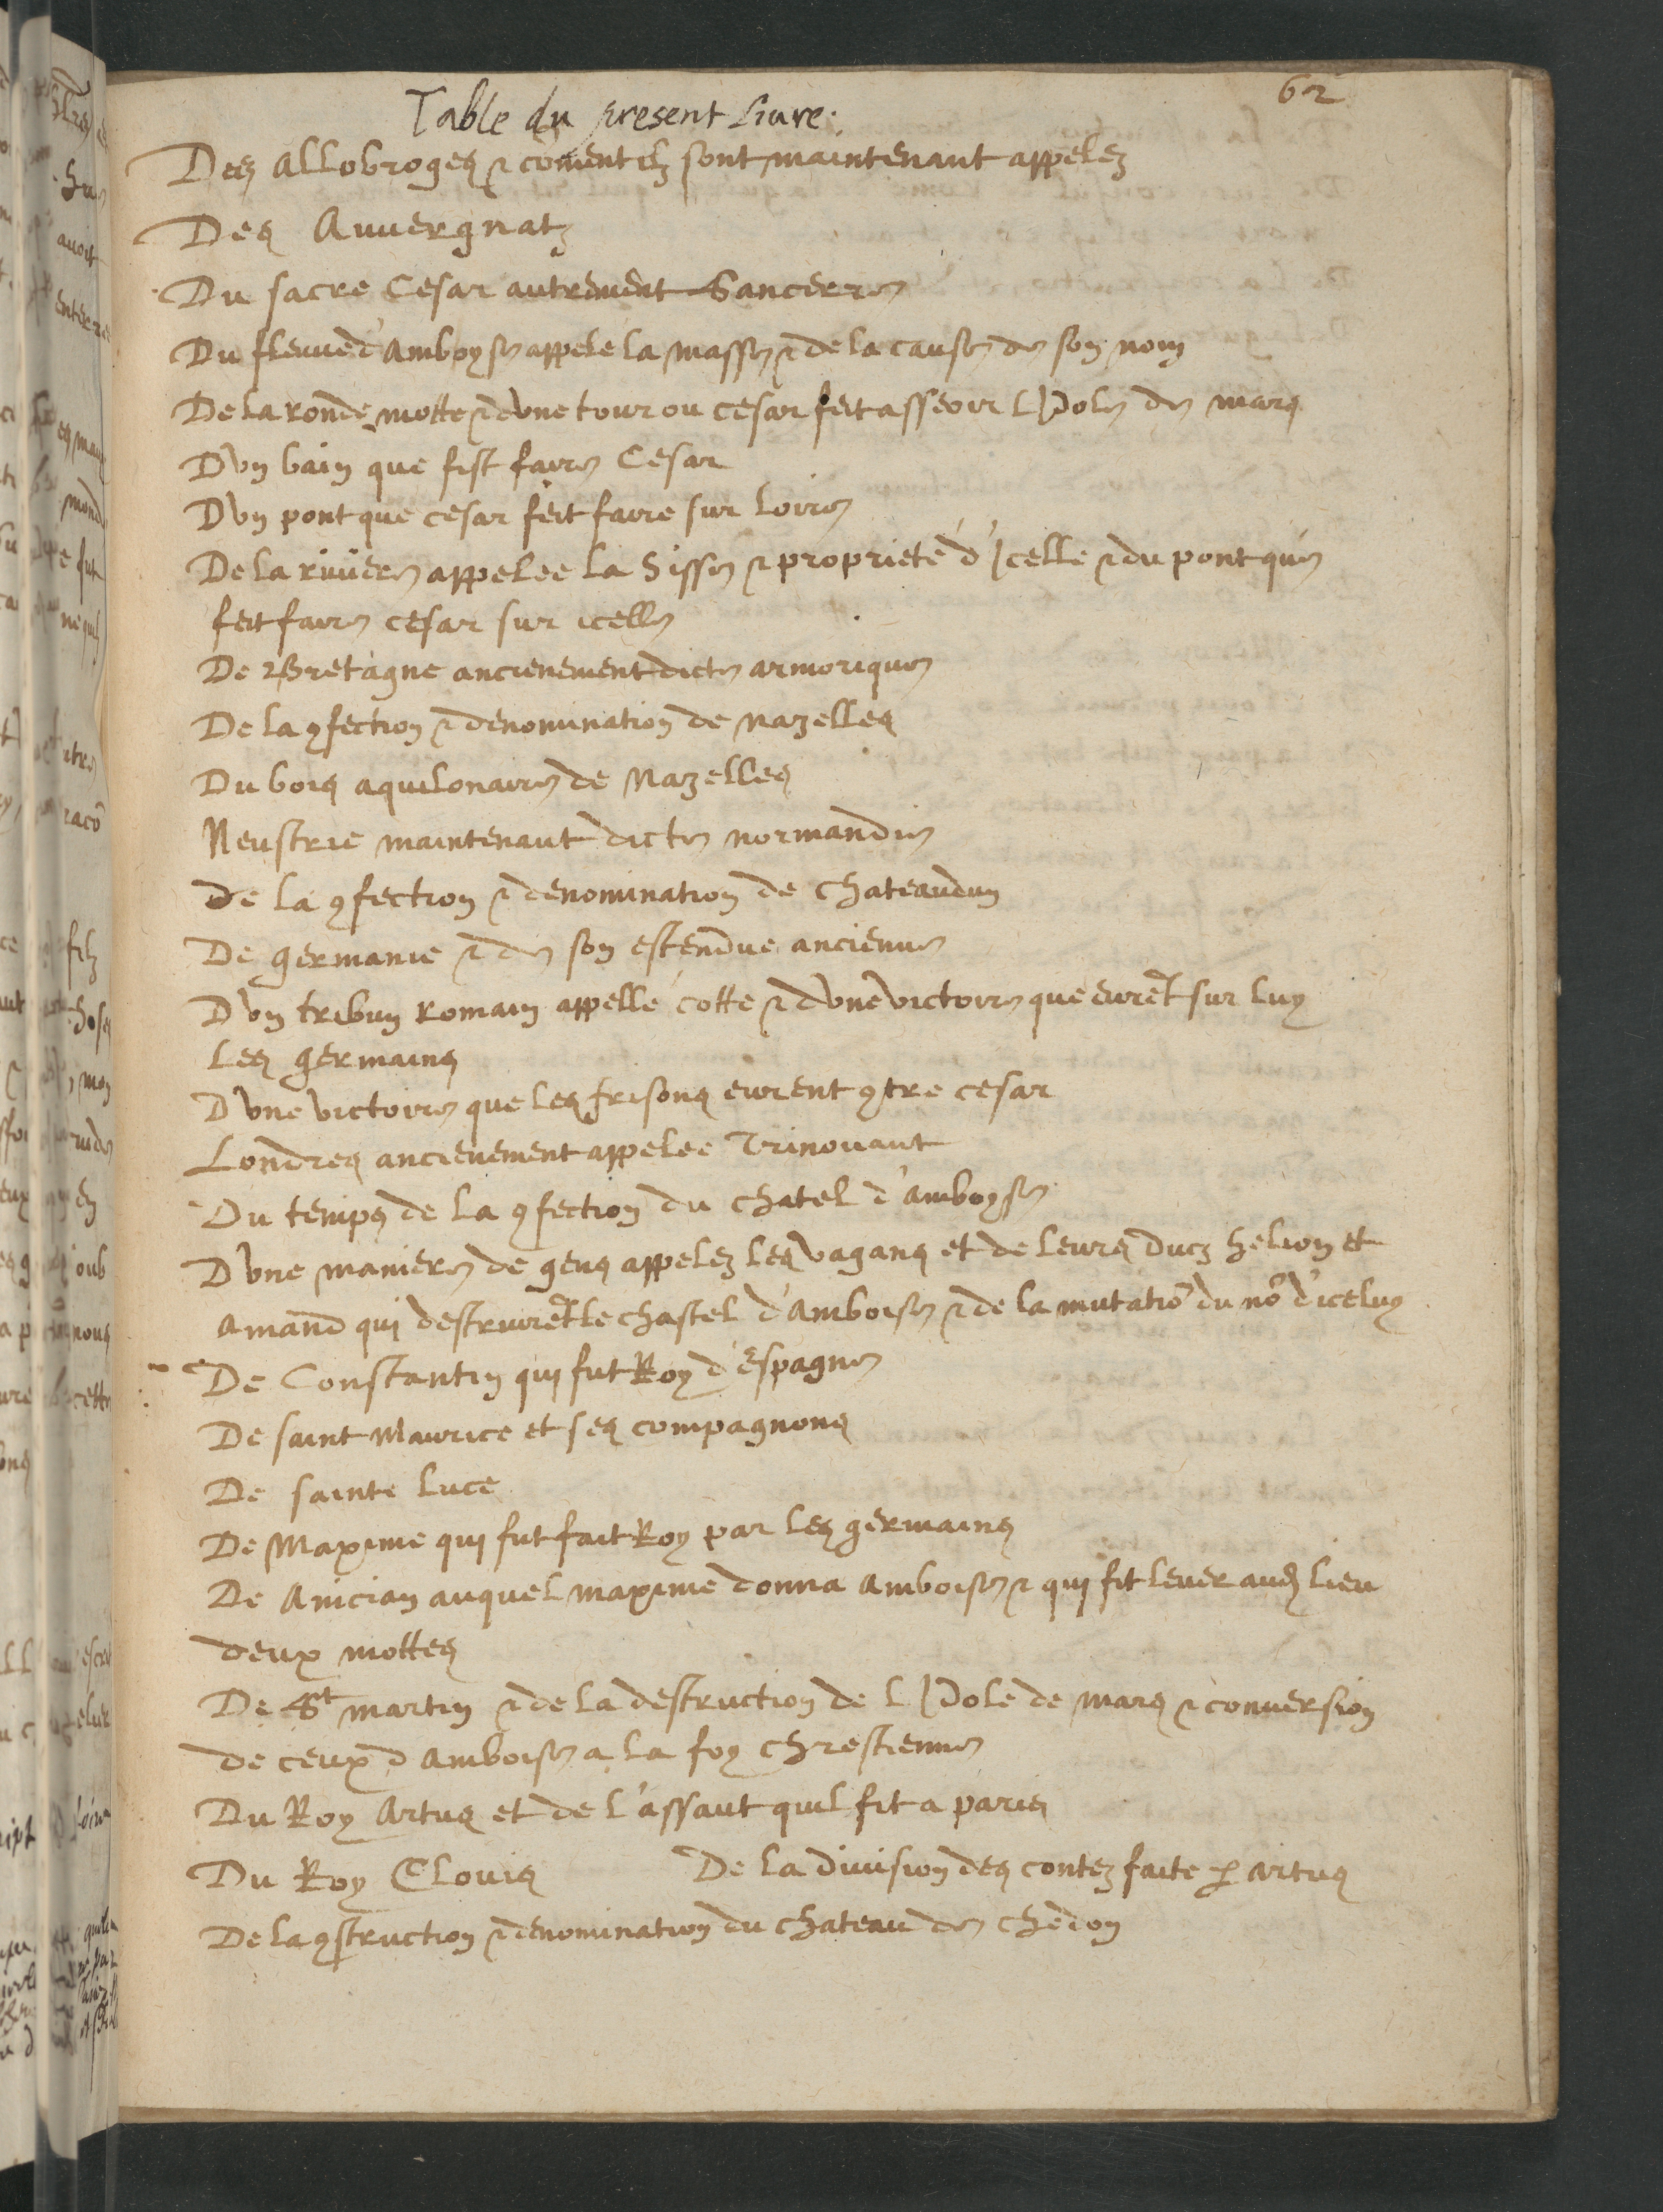 62
Table du present Liure.
Des Allobroges & cõment ilz sont maintenant appelez
Des Auuergnatz
Du sacre Cesar autrement Sancerre
Du fleuue d'Amboyse appelé la masse & de la cause de son nom
De la ronde motte & d'vne tour ou cesar feit asseoir l'Idole de mars
D'vn bain que fist faire Cesar
D'vn pont que cesar feit faire sur loire
De la riuiere appelee la Sisse & proprieté d'Icelle & du pont que
feit faire cesar sur icelle
De Bretagne ancienement dicte armorique
De la ꝯfection & denomination de nazelles
Du bois aquilonaire de Nazelles
Neustrie maintenant dicte normandie
de la ꝯfection & denomination de chateaudun
De germanie & de son estendue ancienne
D'vn tribun Romain appellé cotte & d'vne victoire que eurẽt sur luy
les germains
D'vne victoire que les frisons eurent ꝯtre cesar
Londres ancienement appelee Trinouant
Du temps de la ꝯfection du chatel d'amboyse
D'vne maniere de gens appelez les vagans et de leurs ducz helion et
amand qui destruirẽt le chastel d'Amboise & de la mutatiõ du nõ d'iceluy
De Constantin qui fut Roy d'Espagne
De saint Maurice et ses compagnons
De sainte luce
De Maxime qui fut fait Roy par les germains
De Anician auquel maxime donna amboise & qui fit leuer aud lieu
deux mottes
De St martin & de la destruction de l'Idole de mars & conuersion
de ceux d'amboise a la foy chrestienne
Du Roy Artus et de l'assaut quil fit a paris
Du Roy Clouis De la diuision des contez faite ꝑ artus
De la ꝯstruction & denomination du chateau de chedon